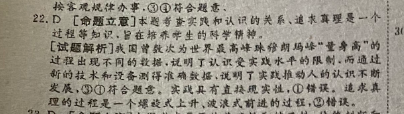 按客观规律办事,③④符合题意。
22. D 【命题立意】本题考查实践和认识的关系、追求真理是一个
过程等知识,旨在培养学生的科学精神。
【试题解析】我国曾数次为世界最高峰珠穆朗玛峰“量身高”的
过程出现不同的数据,说明了认识受实践水平的限制。而通过
新的技术和设备测得准确数据,说明了实践推动人的认识不断
发展,③①符合题意。实践具有直接现实性,①错误。追求真
理的过程是一个螺旋式上升、波浪式前进的过程,②错误。